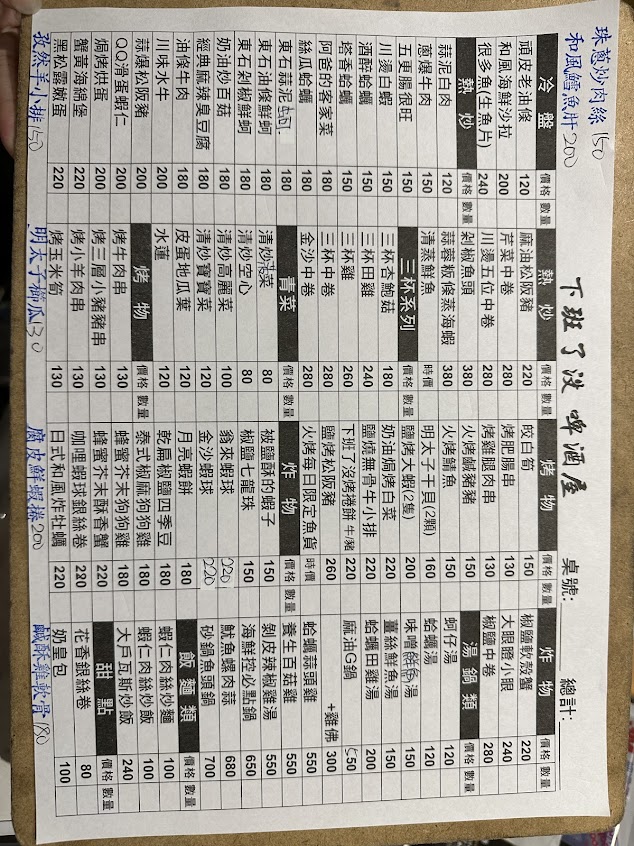 下班了沒 啤酒屋 桌號: 總計:
珠蔥炒肉絲 150
和風鱈魚肝 200
冷盤 價格 數量
頑皮老油條 120
和風海鮮沙拉 200
很多魚(生魚片) 240
熱炒 價格 數量
蒜泥白肉 120
蔥爆牛肉 150
五更腸很旺 150
川燙白蝦 150
酒醉蛤蠣 150
塔香蛤蠣 150
阿爸的客家菜 150
絲瓜蛤蠣 180
東石蒜泥 180
東石油條鮮蚵 180
東石剁椒鮮蚵 180
奶油炒百菇 180
經典麻辣臭豆腐 180
油條牛肉 180
川味水牛 180
蒜爆松阪豬 200
QQ滑蛋蝦仁 200
焗烤烘蛋 200
蟹黃海綿堡 220
黑松露嫩蛋 220
孜然羊小排 150
熱炒 價格 數量
麻油松阪豬 220
芹菜中卷 280
川燙五位中卷 280
剁椒魚頭 380
蒜蓉粄條蒸海蝦 380
清蒸鮮魚 時價
三杯系列 價格 數量
三杯杏鮑菇 180
三杯田雞 240
三杯雞 260
三杯中卷 280
金沙中卷 280
青菜 價格 數量
清炒菜 80
清炒空心 80
清炒高麗菜 100
清炒寶寶菜 120
皮蛋地瓜葉 120
水蓮 120
烤物 價格 數量
烤牛肉串 130
烤三層小豬豬串 130
烤小羊肉串 130
烤玉米筍 130
明太子櫛瓜 130
烤物 價格 數量
皎白筍 150
烤肥腸串 130
烤雞腿肉串 130
火烤鹹豬豬 150
火烤鯖魚 150
明太子干貝(2顆) 160
鹽烤大蝦(2隻) 200
奶油焗烤白菜 220
鹽燒無骨牛小排 220
下班了沒烤捲餅 牛/豬 220
鹽烤松阪豬 260
火烤每日限定魚貨 時價
炸物 價格 數量
被鹽酥的蝦子 150
椒鹽七龍珠 150
翁來蝦球 220
金沙蝦球 220
月亮蝦餅 180
乾扁椒鹽四季豆 180
泰式椒麻狗狗雞 180
蜂蜜芥末狗狗雞 180
蜂蜜芥末酥香蟹 220
咖哩蝦球銀絲卷 220
日式和風炸牡蠣 220
腐皮鮮蝦捲 200
炸物 價格 數量
椒鹽軟殼蟹 220
大眼瞪小眼 240
椒鹽中卷 280
湯鍋類 價格 數量
蚵仔湯 120
蛤蠣湯 120
味噌鮮魚湯 150
薑絲鮮魚湯 150
蛤蠣田雞湯 200
麻油G鍋 550
+雞佛 300
蛤蠣蒜頭雞 550
養生百菇雞 550
剝皮辣椒雞湯 550
海鮮控必點鍋 650
魷魚螺肉蒜 680
砂鍋魚頭鍋 700
飯麵類 價格 數量
蝦仁肉絲炒麵 100
蝦仁肉絲炒飯 100
大戶瓦斯炒飯 240
甜點 價格 數量
花香銀絲卷 80
奶皇包 100
鹹酥雞軟骨 180